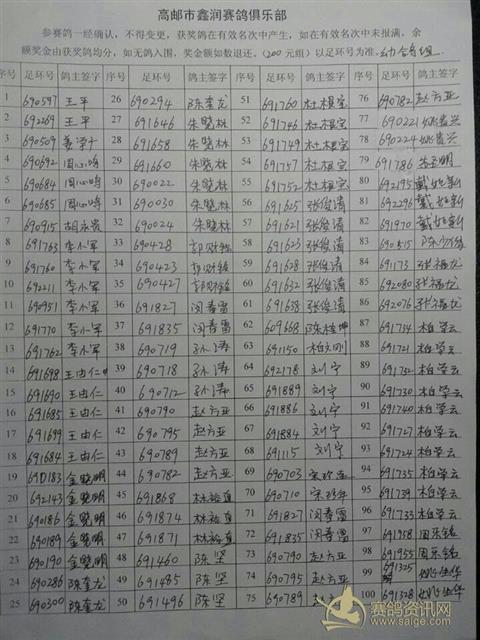 高邮市鑫润赛鸽俱乐部
参赛鸽一经确认，不得变更，获奖鸽在有效名次中产生，如在有效名次中未报满，余
额奖金由获奖鸽均分，如无鸽入围，奖金额如数退还。（200元组）以足环号为准．
序号 足环号 鸽主签字 序号 足环号 鸽主签字 序号 足环号 鸽主签字 序号 足环号 鸽主签字
1 690597 王平 26 690294 陈奎龙 51 691760 杜根宝 76 690782 赵方亚
2 692269 王平 27 691646 朱晓林 52 691746 杜根宝 77 690221 姚贵兴
3 690509 28 691658 朱晓林 53 691749 杜根宝 78 690224 姚贵兴
4 690692 周心鸣 29 691660 朱晓林 54 691757 杜根宝 79 691786
5 690684 周心鸣 30 690022 朱晓林 55 691752 杜根宝 80 692195
6 690685 周心鸣 31 690030 朱晓林 56 691625 张俊清 81 692296
7 690915 胡永贵 32 690024 朱晓林 57 691612 张俊清 82 691970
8 691763 李小军 33 690428 郭财销 58 691623 张俊清 83 690515
9 691760 李小军 34 690423 郭财销 59 691628 张俊清 84 691173 张福龙
10 690211 李小军 35 690427 郭财销 60 691631 张俊清 85 692080 张福龙
11 690951 李小军 36 691827 闵春雷 61 691638 张俊清 86 692076 张福龙
12 691770 李小军 37 691835 闵春雷 62 609668 陈桂坤 87 691734 柏学云
13 691762 李小军 38 690719 孙涛 63 691150 柏文刚 88 691721 柏学云
14 691698 王由仁 39 690718 孙涛 64 692178 刘宁 89 691732 柏学云
15 691690 王由仁 40 690712 孙涛 65 691889 刘宁 90 691730 柏学云
16 691685 王由仁 41 690790 赵方亚 66 691886 刘宁 91 691740 柏学云
17 691699 王由仁 42 690795 赵方亚 67 691884 刘宁 92 691727 柏学云
18 691684 王由仁 43 690789 赵方亚 68 691115 刘宁 93 691724 柏学云
19 690183 金晓明 44 690782 赵方亚 69 690703 94 691735 柏学云
20 692143 金晓明 45 691868 林裕直 70 690710 95 691739 柏学云
21 690186 金晓明 46 691874 林裕直 71 691827 闵春雷 96 691733 柏学云
22 690189 金晓明 47 691871 林裕直 72 691835 闵春雷 97 691958 周乐铭
23 690190 金晓明 48 691460 陈坚 73 690790 赵方亚 98 691955 周乐铭
24 690286 陈奎龙 49 691485 陈坚 74 690795 赵方亚 99 691325
25 690300 陈奎龙 50 691496 陈坚 75 690789 赵方亚 100 691328 姚生华
赛鸽资讯网
www.saige.com